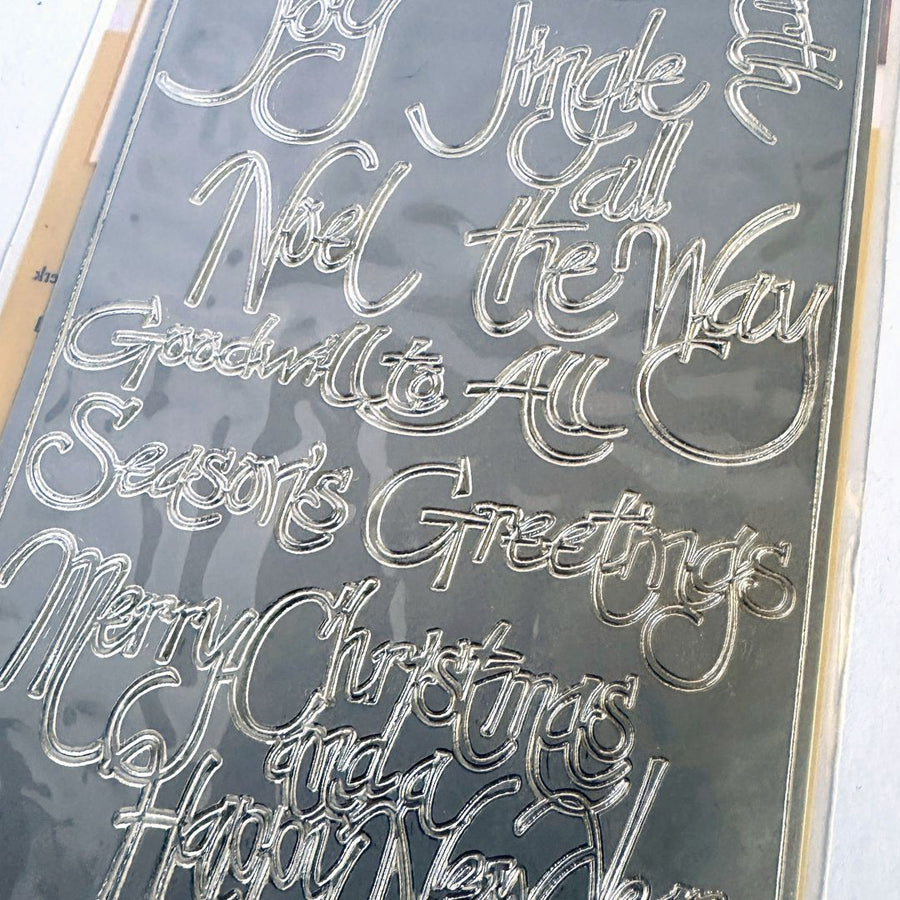 Joy
Jingle
all
the Way
Noel
Goodwill to All
Season's Greetings
Merry Christmas
and a
Happy New